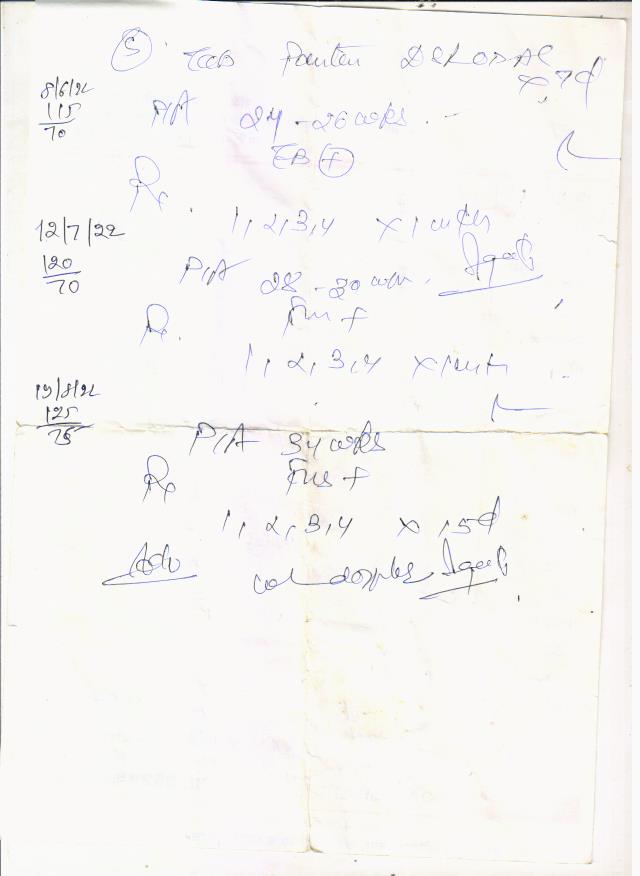 (5) Tab Pantin D&LODAC
x 7d
8/6/22
115
70
P/A 24-26 wks
FB (+)
Rx
1, 2, 3, 4 x 1 mnth
12/7/22
120
70
P/A 28-30 wk.
Rx
FHS +
1, 2, 3, 4 x 1 mnth
19/8/22
125
75
P/A 34 wks
Rx
FHS +
1, 2, 3, 4 x 15d
Adv
col doppler